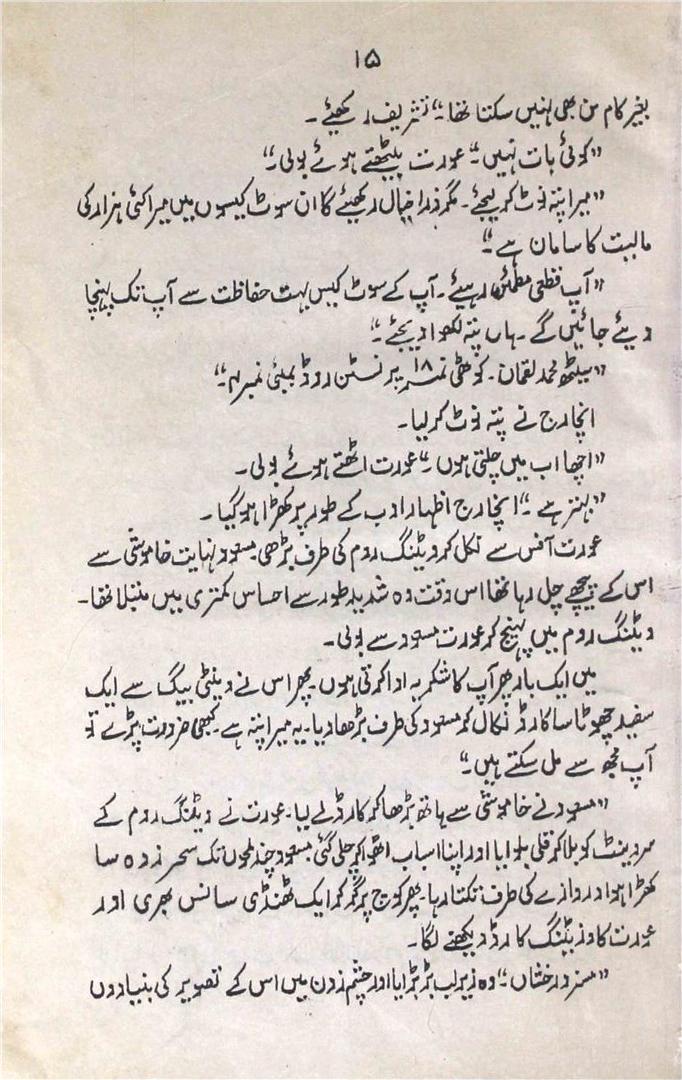 ۱۵
بغیر کام من بھی نہیں سکتا تھا۔“ تشریف رکھیئے۔
”کوئی بات نہیں۔“ عورت بیٹھتے ہوئے بولی۔“
”میرا پتہ نوٹ کر لیجئے۔ مگر ذرا خیال رکھیئے گا ان سوٹ کیسوں میں میرا کئی ہزار کی
مالیت کا سامان ہے۔“
”آپ قطعی مطمئن رہیئے۔ آپ کے سوٹ کیس بہت حفاظت سے آپ تک پہنچا
دیئے جائیں گے۔ ہاں پتہ لکھوا دیجئے۔“
”سیٹھ محمد لقمان۔ کوٹھی نمبر ۱۸ پرنسٹن روڈ بمبئی نمبر ۴۔“
انچارج نے پتہ نوٹ کر لیا۔
”اچھا اب میں چلتی ہوں۔“ عورت اٹھتے ہوئے بولی۔
”بہتر ہے۔“ انچارج اظہار ادب کے طور پر کھڑا ہو گیا۔
عورت آفس سے نکل کر ویٹنگ روم کی طرف بڑھی۔ مسعود نہایت خاموشی سے
اس کے پیچھے چل رہا تھا اس وقت وہ شدید طور سے احساس کمتری میں مبتلا تھا۔
ویٹنگ روم میں پہنچ کر عورت مسعود سے بولی۔
میں ایک بار پھر آپ کا شکریہ ادا کرتی ہوں۔ پھر اس نے وینٹی بیگ سے ایک
سفید چھوٹا سا کارڈ نکال کر مسعود کی طرف بڑھا دیا۔ یہ میرا پتہ ہے۔ کبھی ضرورت پڑے تو
آپ مجھ سے مل سکتے ہیں۔“
”مسعود نے خاموشی سے ہاتھ بڑھا کر کارڈ لے لیا۔ عورت نے ویٹنگ روم کے
سروینٹ کو بلا کر قلی بلوایا اور اپنا اسباب اٹھوا کر چلی گئی مسعود چند لمحوں تک سحر زدہ سا
کھڑا ہوا دروازے کی طرف تکتا رہا۔ پھر کوچ پر گر کر ایک ٹھنڈی سانس بھری اور
عورت کا وزیٹنگ کارڈ دیکھنے لگا۔
”مسز درخشاں۔“ وہ زیر لب بڑبڑایا اور چشم زدن میں اس کے تصویر کی بنیادوں